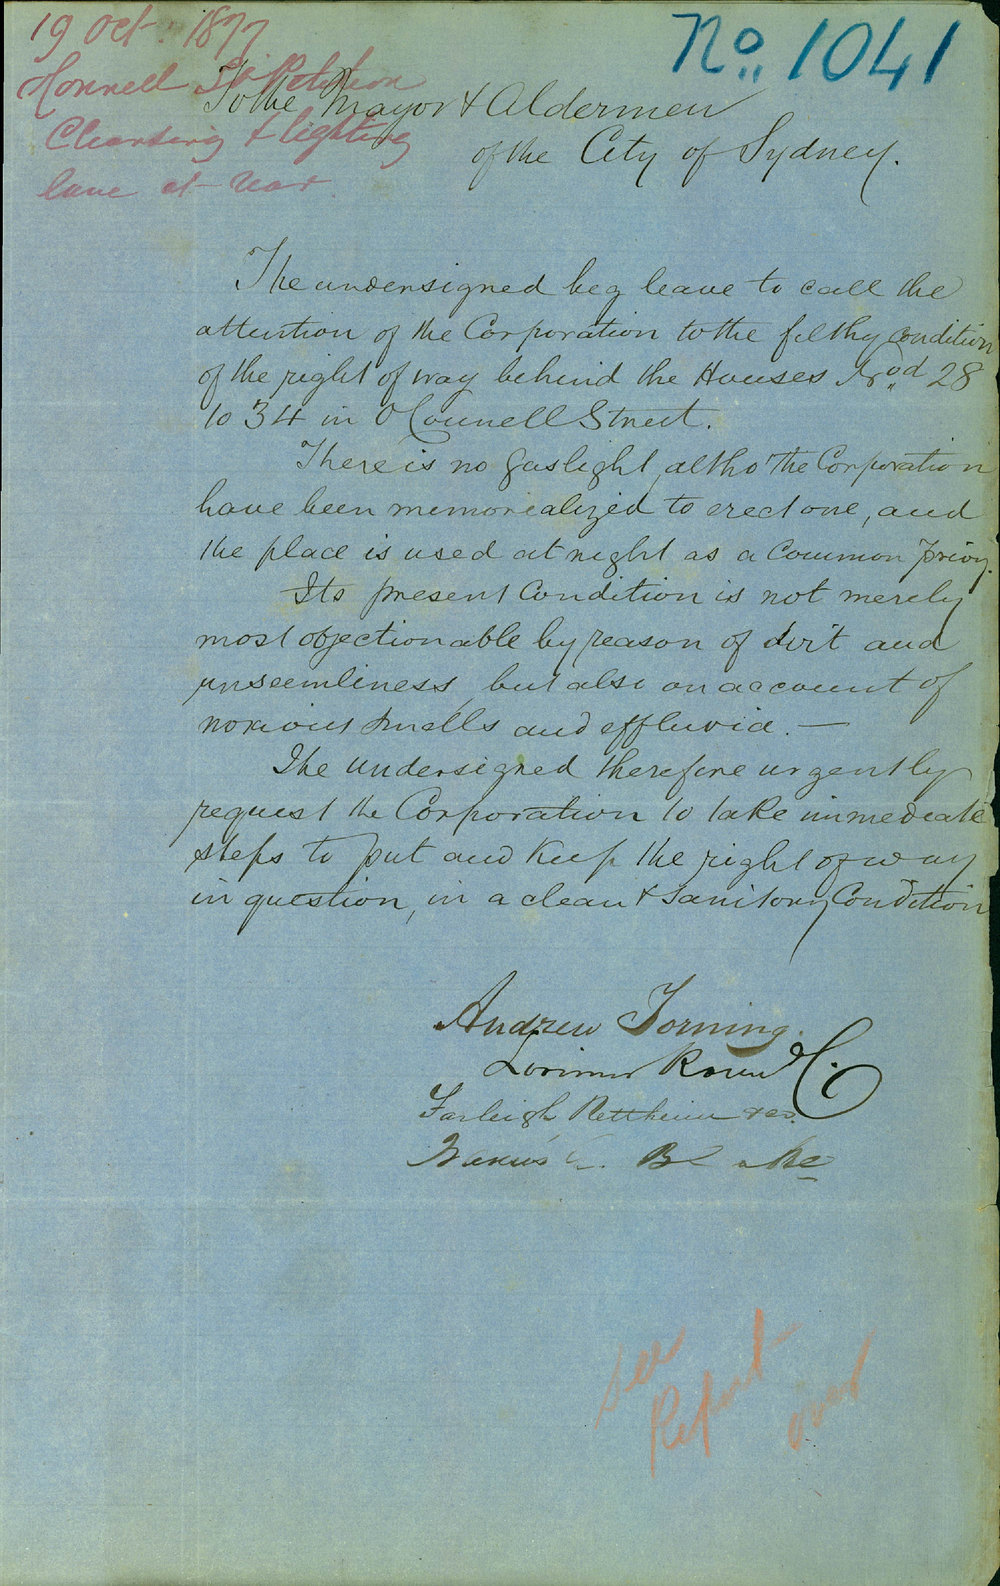 19 Oct. 1877
O'Connell St Petition
Cleansing & lighting
lane at rear
No. 1041
To the Mayor & Aldermen
of the City of Sydney.
The undersigned beg leave to call the
attention of the Corporation to the filthy condition
of the right of way behind the Houses No.d 28
to 34 in O'Connell Street.
There is no gaslight, altho' the Corporation
have been memorialized to erect one, and
the place is used at night as a common privy.
Its present Condition is not merely
most objectionable by reason of dirt and
unseemliness, but also on account of
noxious smells and effluvia. —
The undersigned therefore urgently
request the Corporation to take immediate
steps to put and keep the right of way
in question, in a clean & sanitory Condition
Andrew Torning.
Lorimer & Co.
Farleigh Nettheim & Co.
see
Report
over